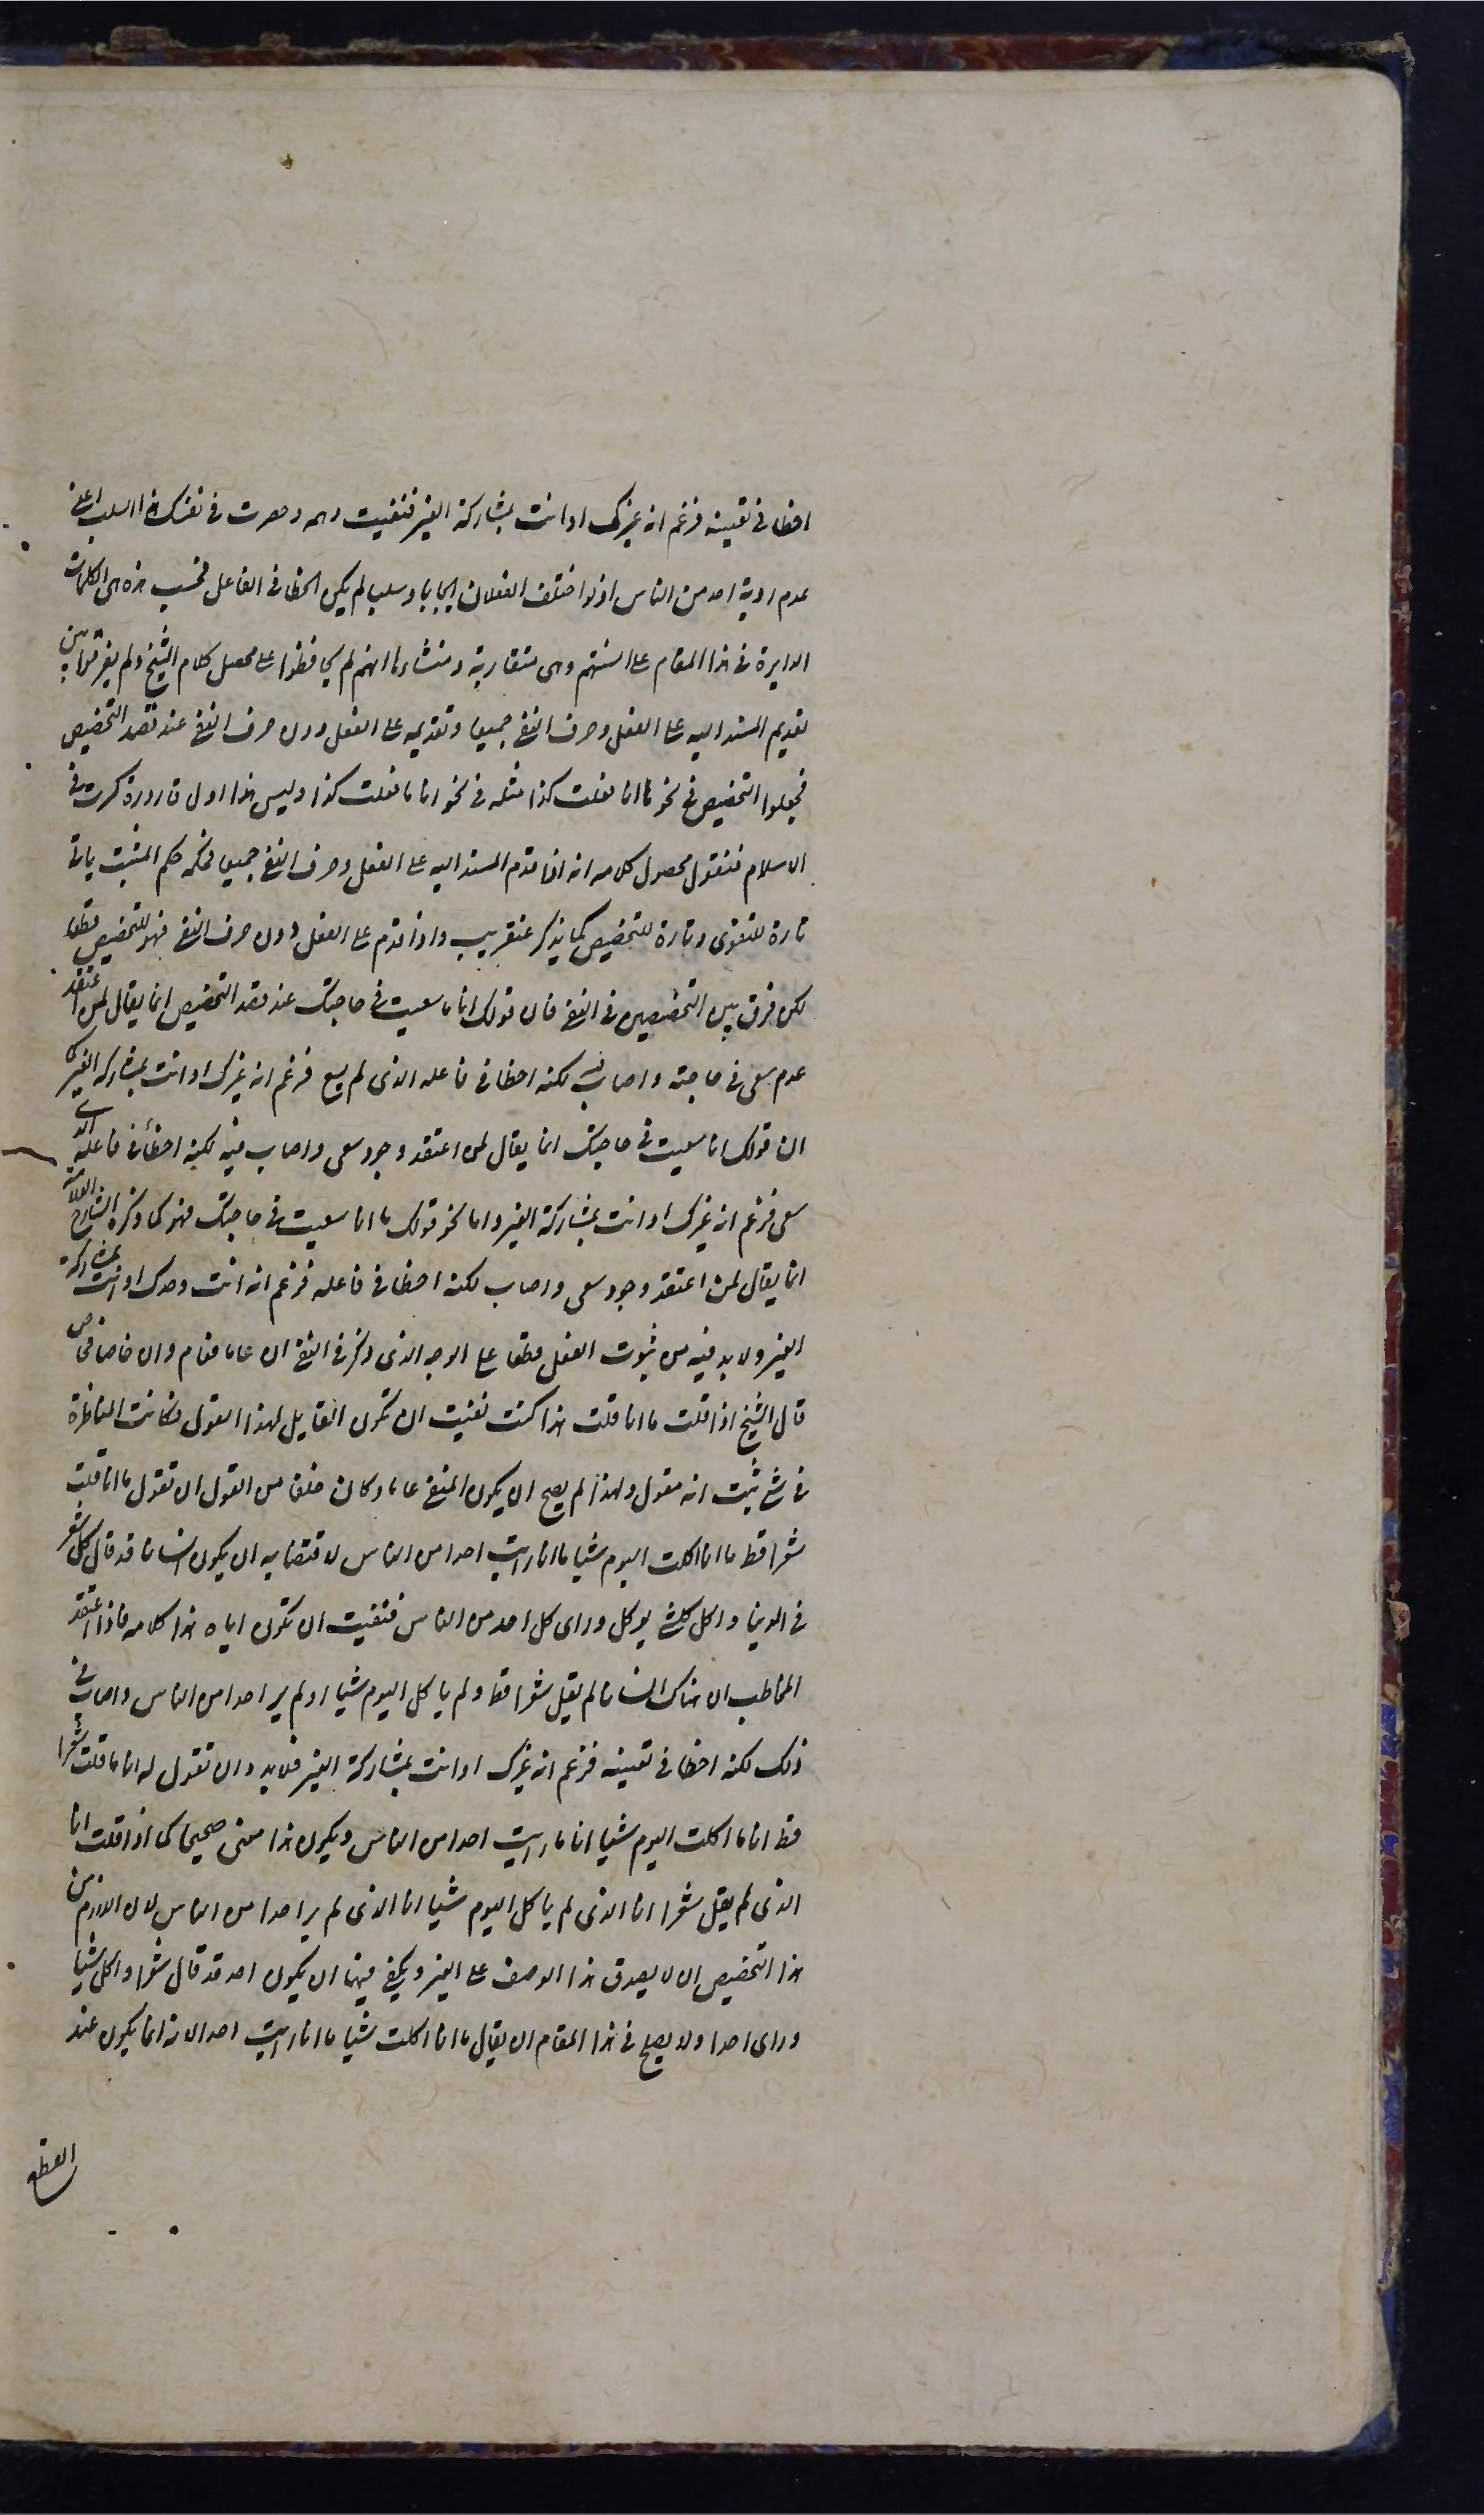 اخطا في تعيينه فزعم انه غيرك او انت بمشاركة الغير فنفيت وهمه وحصرت في نفسك هذا السلب اعنى
عدم روية احد من الناس اذ لو اختلف الفعلان ايجابا وسلبا لم يكن الخطا في الفاعل فحسب هذه هى الكلمات
الدايرة في هذا المقام على السنتهم وهى متقاربة ومنشاوها انهم لم يحافظوا على محصل كلام الشيخ ولم يفرقوا بين
تقديم المسند اليه على الفعل وحرف النفى جميعا وتقديمه على الفعل دون حرف النفى عند قصد التخصيص
فجعلوا التخصيص في نحو ما انا فعلت كذا مثله في نحو انا ما فعلت كذا وليس هذا اول قارورة كسرت في
الاسلام فنقول محصول كلامه انه اذا قدم المسند اليه على الفعل وحرف النفى جميعا فحكمه حكم المثبت ياتى
تارة للتقوى وتارة للتخصيص كما يذكر عنقريب واذا قدم على الفعل دون حرف النفى فهو للتخصيص قطعا
لكن فرق بين التخصيصين في النفى فان قولك انا ما سعيت في حاجتك عند قصد التخصيص انما يقال لمن اعتقد
عدم سعى في حاجته واصاب فيه لكنه اخطا في فاعله الذى لم يسع فزعم انه غيرك او انت بمشاركة الغير كما
ان قولك انا سعيت في حاجتك انما يقال لمن اعتقد وجود سعى واصاب فيه لكنه اخطأ في فاعله الذى
سعى فزعم انه غيرك او انت بمشاركة الغير واما نحو قولك ما انا سعيت في حاجتك فهو كما ذكره الشارح العلامة
انما يقال لمن اعتقد وجود سعى واصاب لكنه اخطا في فاعله فزعم انه انت وحدك او انت بمشاركة
الغير ولا بد فيه من ثبوت الفعل قطعا على الوجه الذى ذكر في النفى ان عاما فعام وان خاصا فخاص
قال الشيخ اذا قلت ما انا قلت هذا كنت نفيت ان تكون القايل لهذا القول وكانت المناظرة
في شئ ثبت انه مقول ولهذا لم يصح ان يكون المنفى عاما وكان خلفا من القول ان تقول ما انا قلت
شعرا قط ما انا اكلت اليوم شيا ما انا رايت احدا من الناس لاقتضايه ان يكون انسانا قد قال كل شعر
في الدنيا واكل كل شئ يوكل وراى كل احد من الناس فنفيت ان تكون اياه هذا كلامه فاذا اعتقد
المخاطب ان هناك انسانا لم يقل شعرا قط ولم ياكل اليوم شيا او لم ير احدا من الناس واصاب في
ذلك لكنه اخطا في تعيينه فزعم انه غيرك او انت بمشاركة الغير فلا بد وان تقول له انا ما قلت شعرا
قط انا ما اكلت اليوم شيا انا ما رايت احدا من الناس ويكون هذا معنى صحيحا كما اذا قلت انا
الذى لم يقل شعرا انا الذى لم ياكل اليوم شيا انا الذى لم ير احدا من الناس لان اللازم من
هذا التخصيص ان لا يصدق هذا الوصف على الغير ويكفى فيها ان يكون احد قد قال شعرا واكل شيا
وراى احدا ولا يصلح في هذا المقام ان يقال ما انا اكلت شيا ما انا رايت احدا لانه انما يكون عند
القطع